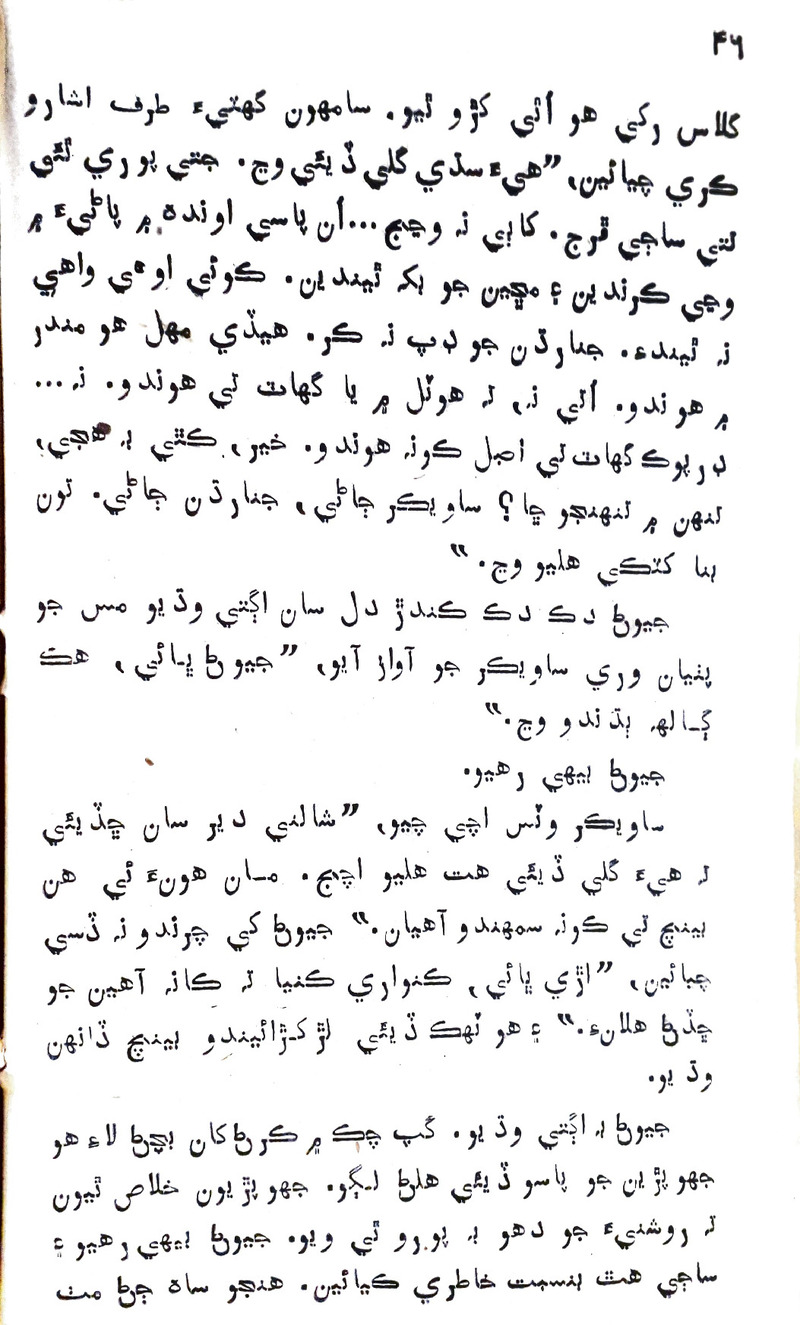 ۴۶
گلاس رکي هو اُٿي کڙو ٿيو. سامهون گهٽيءَ طرف اشارو
ڪري چيائين، ”هيءَ سڌي گلي ڏيئي وڃ. جتي پوري ٿئي
تتي ساڄي ڦرج. کاٻي نہ وڃج...اُن پاسي اونده ۾ پاڻيءَ ۾
وڃي ڪرندين ۽ مڇين جو بکہ ٿيندين. ڪوئي اوهي واهي
نہ ٿيندءِ. جنارڌن جو ڊپ نہ ڪر. هيڏي مهل هو مندر
۾ هوندو. اُتي نہ، تہ هوٽل ۾ يا گهاٽ تي هوندو. نہ...
ڊرپوڪ گهاٽ تي اصل ڪونہ هوندو. خير، ڪٿي بہ هجي،
تنهن ۾ تنهنجو ڇا؟ ساويڪر ڄاڻي، جنارڌن ڄاڻي. تون
بنا کٽڪي هليو وڃ.“
جيوڻ دڪ دڪ ڪندڙ دل سان اڳتي وڌيو مس جو
پٺيان وري ساويڪر جو آواز آيو، ”جيوڻ ڀائي، هڪ
ڳالهہ ٻڌندو وڃ.“
جيوڻ بيهي رهيو.
ساويڪر وٽس اچي چيو، ”شالني دير سان ڇڏيئي
تہ هيءَ گلي ڏيئي هت هليو اچج. مان هونءَ ئي هن
بينچ تي ڪونہ سمهندو آهيان.“ جيوڻ کي چرندو نہ ڏسي
چيائين، ”اڙي ڀائي، ڪنواري ڪنيا تہ ڪانہ آهين جو
ڇڏڻ هلانءِ.“ ۽ هو ٽهڪ ڏيئي لڙکڙائيندو بينچ ڏانهن
وڌيو.
جيوڻ بہ اڳتي وڌيو. گپ چڪ ۾ ڪرڻ کان بچڻ لاءِ هو
جهوپڙين جو پاسو ڏيئي هلڻ لڳو. جهوپڙيون خلاص ٿيون
تہ روشنيءَ جو دهو بہ پورو ٿي ويو. جيوڻ بيهي رهيو ۽
ساڄي هٿ بنسبت خاطري ڪيائين. هنجو ساهہ ڄڻ مٺ